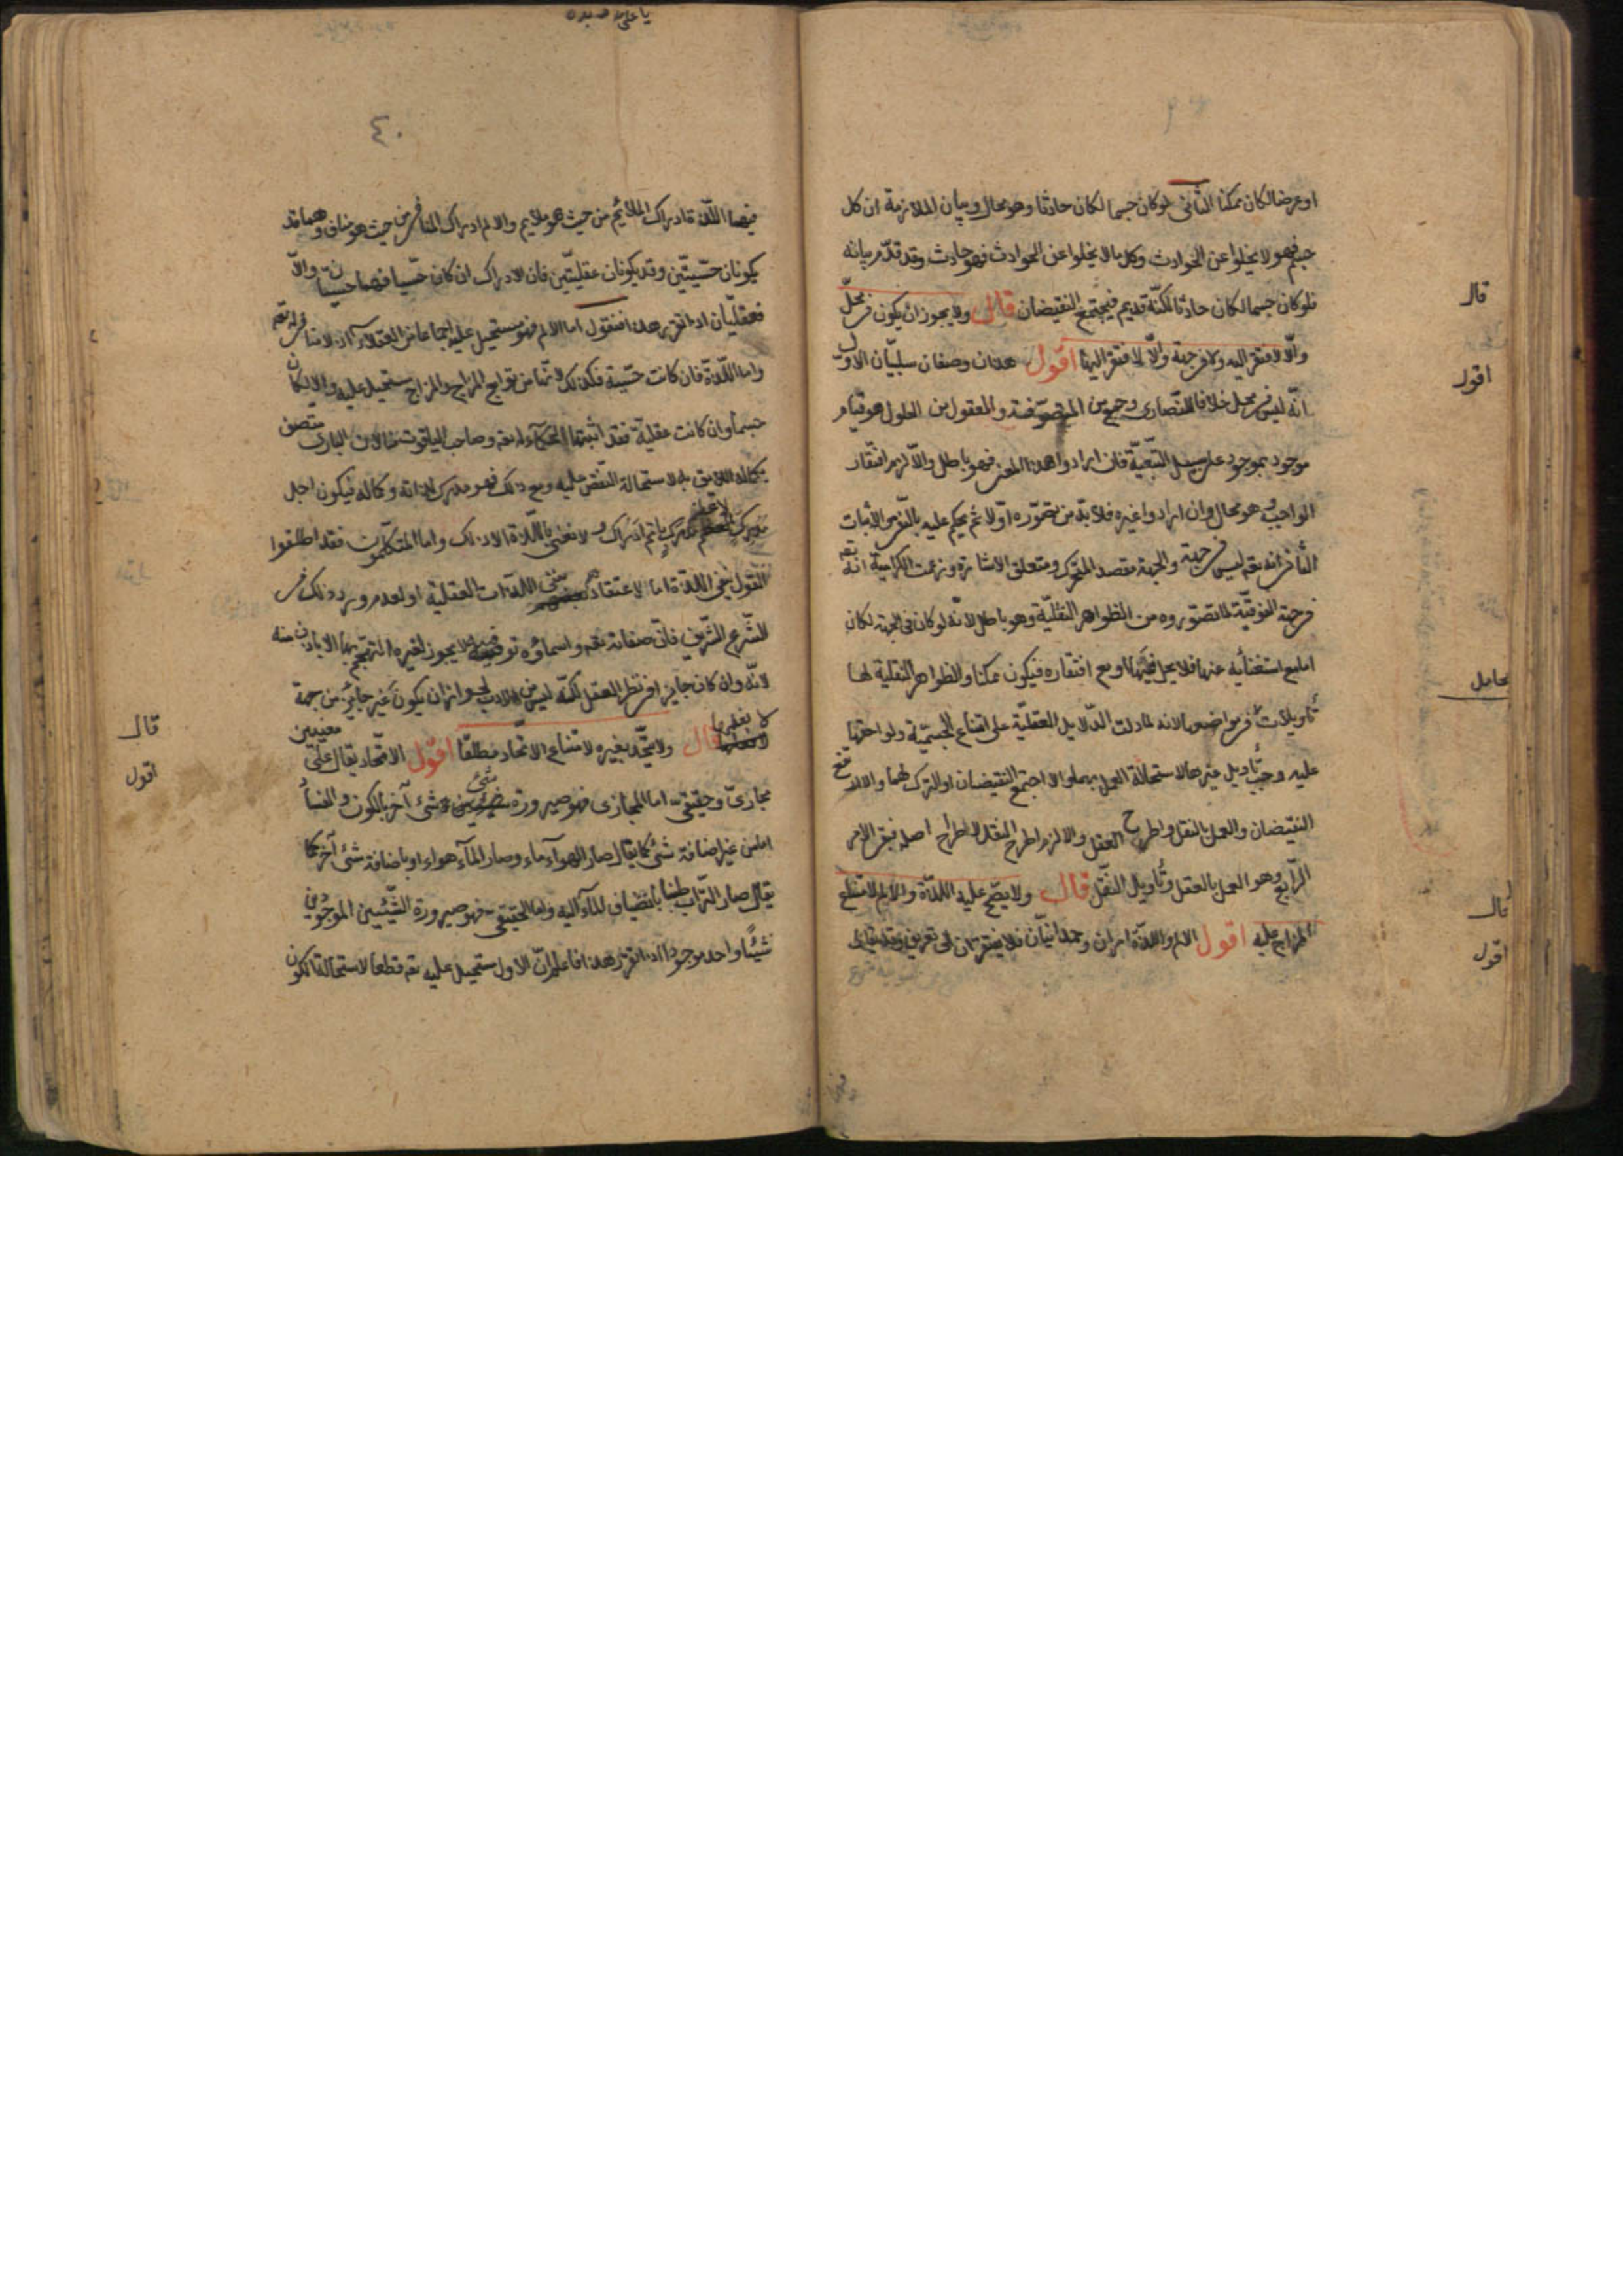 قال
اقول
تحامل
قال
اقول
او عرضا لكان ممكنا الثانى لو كان جسما لكان حادثا وهو محال وبيان الملازمة ان كل
جسم فهو لا يخلوا عن الحوادث وكل ما لا يخلوا عن الحوادث فهو حادث وقد تقدّم بيانه
فلو كان جسما لكان حادثا لكنّه قديم فيجتمع النقيضان قال ولا يجوز ان يكون فى محلّ
والّا لافتقر اليه ولا فى جهة والّا لافتقر اليها اقول هذان وصفان سلبيّان الاوّل
انّه ليس فى محل خلافا للنّصارى وجمع من المتصوّفة والمعقول من الحلول هو قيام
موجود بموجود على سبيل التّبعيّة فان ارادوا هذا المعنى فهو باطل والّا لزم افتقار
الواجب وهو محال وان ارادوا غيره فلا بدّ من تصوّره اوّلا ثم يحكم عليه بالنّفى والاثبات
الثانى انه تعم ليس فى جهة والجهة مقصد المتحرّك ومتعلق الاشارة وزعمت الكرامية انه تعم
فى جهة الفوقيّة لما تصوّروه من الظواهر النّقليّة وهو باطل لانّه لو كان فى الجهة لكان
اما مع استغنائه عنها فلا يحل فيها او مع افتقاره فيكون ممكنا والظواهر النقلية لها
تأويلات فى مواضعها لانه لما دلت الدّلايل العقليّة على امتناع الجسميّة ولواحقها
عليه وجب تأويل غيرها لاستحالة العمل بهما والا اجتمع النقيضان او الترك لهما والا ارتفع
النقيضان والعمل بالنقل واطرح العقل والا لزم اطرح النقل لاطراح اصله فبقى الامر
الرّابع وهو العمل بالعقل وتأويل النّقل قال ولا يصّح عليه اللّذّة والالم لامتناع
المزاج عليه اقول الالم واللّذّة امران وجدانيّان فلا يفتقران الى تعريف وقد يقال
٤٠
قال
اقول
فيهما اللّذّة ادراك الملائم من حيث هو ملايم والالم ادراك المنافى من حيث هو مناف وهما قد
يكونان حسّيتّين وقد يكونان عقليّتين فان الادراك ان كان حسّيا فهما حسّيّان والّا
فعقليّان اذا تقرّر هذا فنقول اما الالم فهو مستحيل عليه اجماعا من العقلاء اذ لا منافى له تعم
واما اللّذّة فان كانت حسّية فكذلك لانّها من توابع المزاج والمزاج يستحيل عليه والا لكان
جسما وان كانت عقلية فقد اثبتها الحكماء له تعم وصاحب الياقوت منا لان البارى متصف
بكماله اللايق به لاستحالة النّقص عليه ومع ذلك فهو مدرك لذاته وكماله فيكون اجل
مدرك لاعظم مدرك باتم ادراك ولا نعنى باللّذة الا ذلك واما المتكلمون فقد اطلقوا
القول بنفى اللذة اما لاعتقادهم نفى اللذات العقلية او لعدم ورود ذلك فى
الشّرع الشّريف فانّ صفاته تعم واسماؤه توقيفية لا يجوز لغيره التهجّم بها الا باذن منه
لانّه وان كان جايزا فى نظر العقل لكنّه ليس من الادب لجواز ان يكون غير جايز من جهة
لا نعلمها قال ولا يتّحد بغيره لامتناع الاتحاد مطلقا اقول الاتّحاد يقال على معنيين
مجازىّ وحقيقى اما المجازى فهو صيرورة شئ شئ آخر بالكون والفساد
اما من غير اضافة شئ كما يقال صار الهوآء ماء وصار المآء هواء او باضافة شئ آخر كما
يقال صار التّراب طينا بانضياف المآء اليه واما الحقيقى فهو صيرورة الشّيئين الموجودين
شيئا واحدا موجودا اذا تقرّر هذا فاعلم انّ الاول مستحيل عليه تعم قطعا لاستحالة الكون